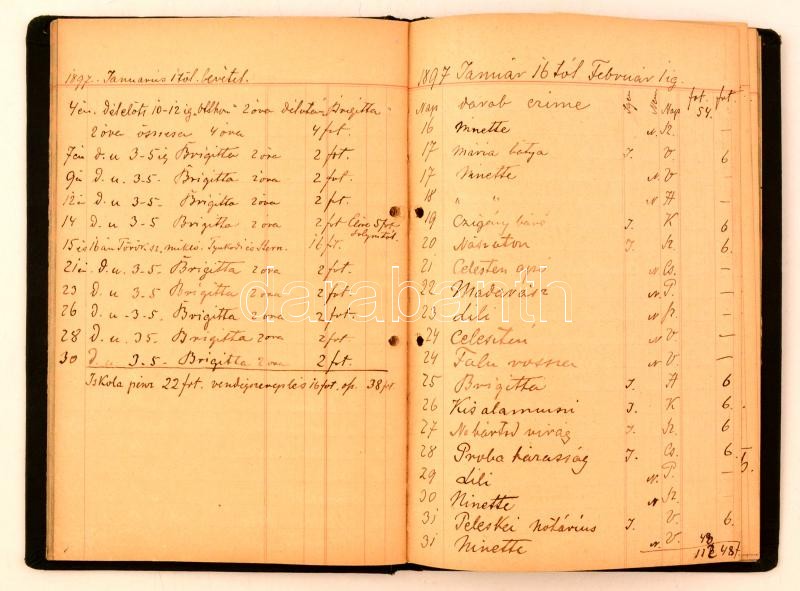 1897. Januarius 1től. bevétel.
4én délelőtt 10-12ig 2 óra délután Brigitta
2 óra összesen 4 óra 4 frt.
7én d. u 3-5ig Brigitta 2 óra 2 frt.
9én d. u. 3-5- Brigitta 2 óra 2 frt.
12én d. u 3-5. Brigitta 2 óra 2 frt.
14 d. u 3-5 Brigitta 2 óra 2 frt 5 frt
15 és 16án Török sz. mikló. 16 frt.
21én. d. u. 3-5. Brigitta 2 óra 2 frt.
23 d. u 3-5. Brigitta 2 óra 2 frt.
26 d. u -3-5. Brigitta 2 óra 2 frt.
28 d. u. 35. Brigitta 2 óra 2 frt.
30 d u 3-5- Brigitta 2 óra 2 frt.
Iskola pénz 22 frt. vendégszereplés 16 frt. 38 frt
1897 Január 16től Február 1ig.
Nap darab czime Nap frt. frt.
54.
16 Ninette N. Sz. —
17 Mária bátya I. V. 6
17 Ninette N. V —
18 " " N. H —
19 Czigány báró I. K 6
20 Nászuton I. Sz. 6.
21 Celesten apó N. Cs. —
22 Madarász N. P. —
23 Lili N. Sz. —
24 Celestén N. V —
24 Falu rossza N. V —
25 Brigitta I. H 6.
26 Kis alamuszi I. K 6.
27 virág I. Sz. 6.
28 Proba házasság I. Cs. 6.
29 Lili N. P. —
30 Ninette N Sz. —
31 Peleskei nótárius I. V. 6.
31 Ninette N. V. 48
48.
darabanth